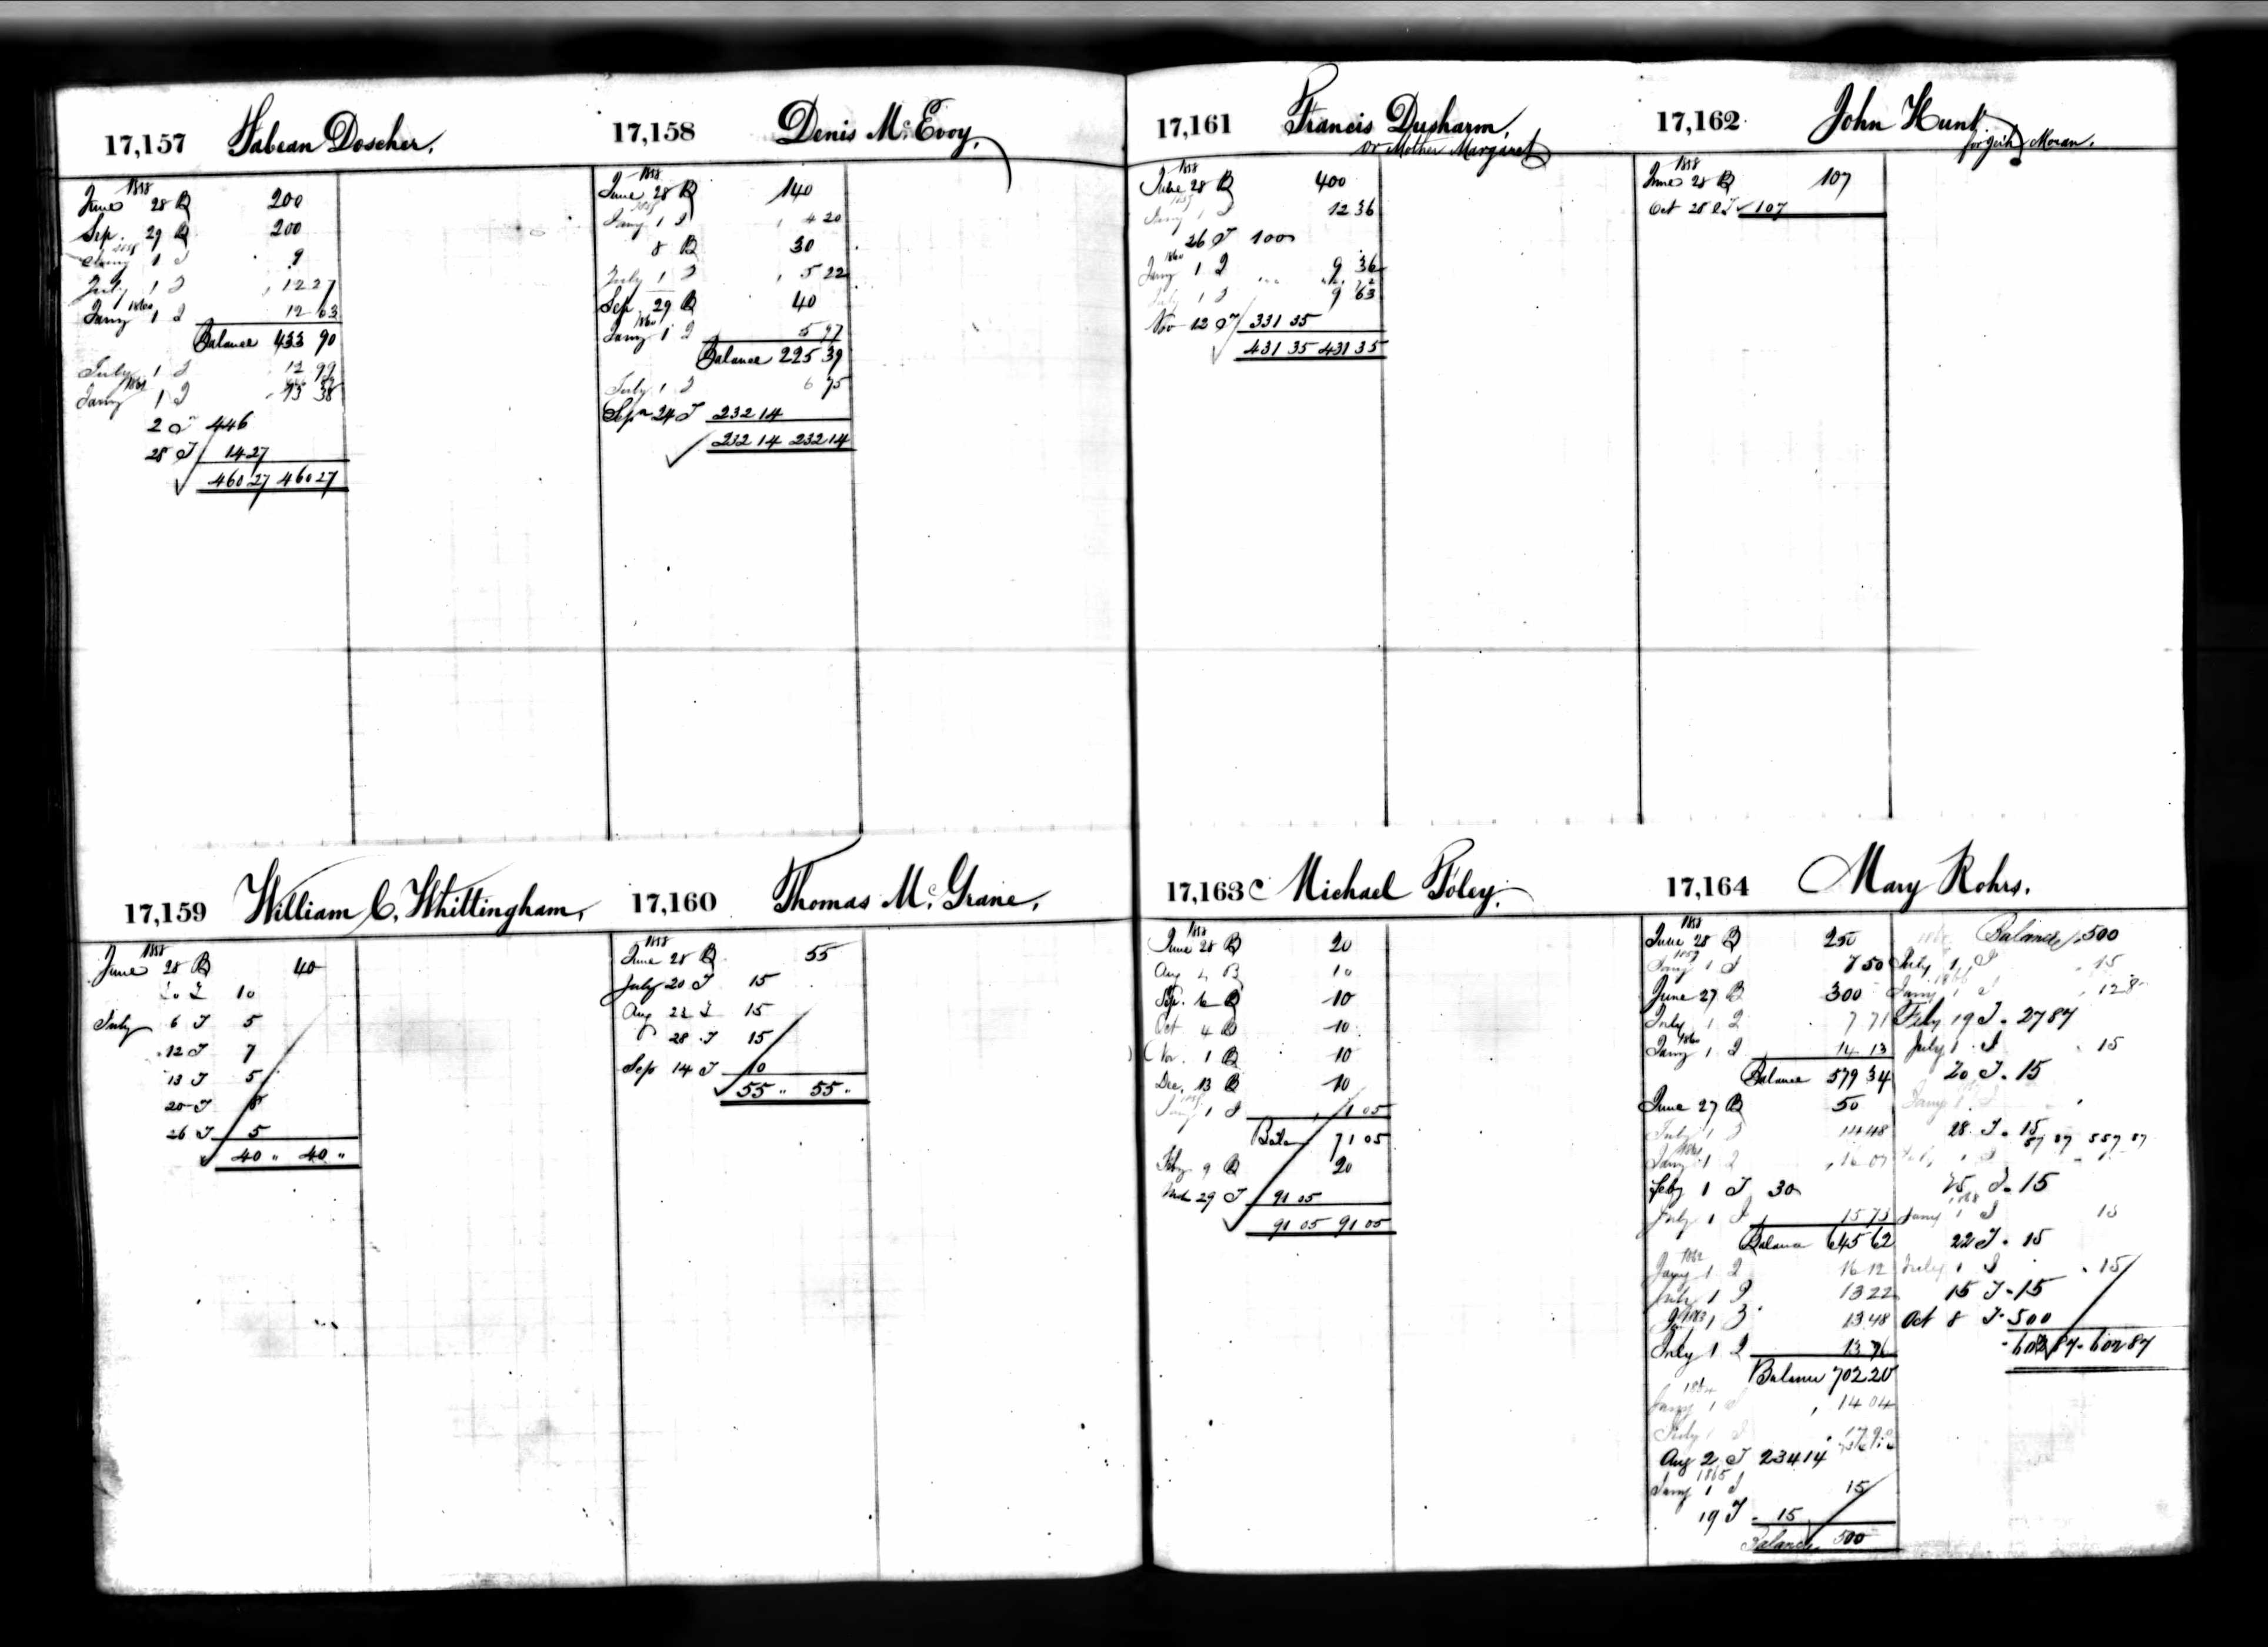 17,157 Fabean Doscher.
1858
June 28 B 200
Sep. 29 B 200
1859
Jany 1 I 9
July 1 I 12 27
1860
Jany 1 I 12 63
Balance 433 90
July 1 I 12 99
1861
Jany 1 I 13 38
2 T 446
28 T 14 27
460 27 460 27
17,158 Denis Mc Evoy,
1858
June 28 B 140
1859
Jany 1 I 4 20
8 B 30
July 1 I 5 22
Sep. 29 B 40
1860
Jany 1 I 5 97
Balance 225 39
July 1 I 6 75
Sepr 24 T 232 14
232 14 232 14
17,159 William C. Whittingham,
1858
June 28 B 40
T 10
July 6 T 5
12 T 7
13 T 5
20 T 8
26 T 5
40 " 40 "
17,160 Thomas Mc Grane,
1858
June 28 B 55
July 20 T 15
Aug 23 T 15
28 T 15
Sep 14 T 10
55 " 55 "
17,161 Francis Dusharm,
or Mother Margaret
1858
June 28 B 400
1859
Jany 1 I 12 36
26 T 100
1860
Jany 1 I 9 36
July 1 I 9 63
Nov 12 T 331 35
431 35 431 35
17,162 John Hunt
for Moran.
1858
June 28 B 107
Oct 28 T 107
17,163 C Michael Foley.
1858
June 28 B 20
Aug B 10
Sep. 6 B 10
Oct 4 B 10
Nov. 1 B 10
Dec. 13 B 10
1859
Jany 1 I 1 05
Bala 71 05
Feby 9 B 20
Mch 29 T 91 05
91 05 91 05
17,164 Mary Rohrs.
1858
June 28 B 250
1859
Jany 1 I 7 50
June 27 B 300
July 1 I 7 71
1860
Jany 1 I 14 13
Balance 579 34
June 27 B 50
July 1 I 14 48
1861
Jany 1 I 16 07
Feby 1 T 30
July 1 I 15 73
Balance 645 62
1862
Jany 1 I 16 12
July 1 I 13 22
1863
Jany 1 I 13 48
July 1 I 13 76
Balance 702 20
1864
Jany 1 I 14 04
July 1 I 17 90
Aug 2 T 234 14
1865
Jany 1 I 15
19 T 15
Balance 500
Balance 500
July 1 I 15
1866
Jany 1 I 12 8
Feby 19 T 27 87
July 1 I 15
20 T 15
Jany 1 I
28 T 15
57 87 557 87
July 1 I
25 T 15
1868
Jany 1 I 15
22 T 15
July 1 I 15
15 T 15
Oct 8 T 500
602 87 602 87